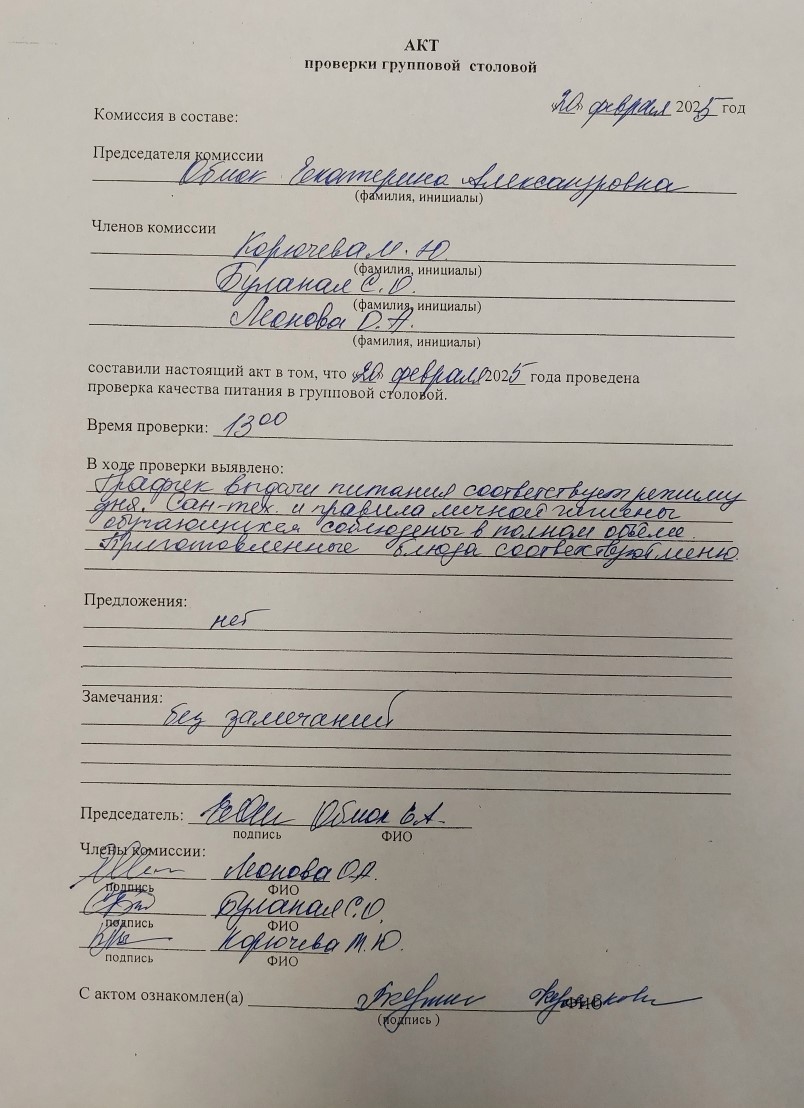 АКТ
проверки групповой столовой
«20» февраля 2025 год
Комиссия в составе:
Председателя комиссии
Екатерина Александровна
(фамилия, инициалы)
Членов комиссии
Корючева М. Ю.
(фамилия, инициалы)
Буланая С. О.
(фамилия, инициалы)
Леонова О. А.
(фамилия, инициалы)
составили настоящий акт в том, что «20» февраля 2025 года проведена
проверка качества питания в групповой столовой.
Время проверки: 13 00
В ходе проверки выявлено:
График выдачи питания соответствует режиму
дня. Сан-тех. и правила личной гигиены
обучающихся соблюдены в полном объёме.
Приготовленные блюда соответствуют меню.
Предложения:
нет
Замечания:
без замечаний
Председатель: Е.А.
подпись ФИО
Члены комиссии:
Леонова О.А.
подпись ФИО
Буланая С.О.
подпись ФИО
Корючева М.Ю.
подпись ФИО
С актом ознакомлен(а)
(подпись ) ФИО